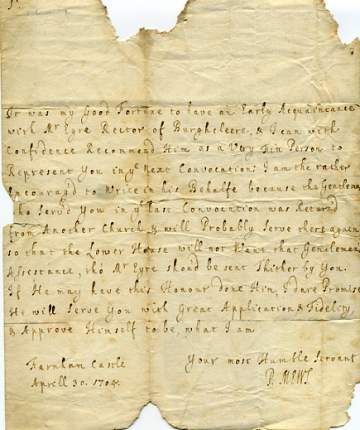 Sr
It was my Good Fortune to have an Early Acquaintance
with Mr Eyre Rector of Burghcleere, & I can with
Confidence Recommend Him as a Very Fin Person to
Represent You in ye next Convocation; I am the rather
Encourag'd to Write in his Behalfe because the Gentleman
who Serv'd You in ye last Convocation was Return'd
from Another Church & will Probably Serve there again
so that the Lower House will not Want that Gentlemans
Assistance, tho Mr Eyre should be sent thither by You.
If He may have this Honour done Him, I dare Promise
He will Serve You with Great Application & Fidelity
& Approve Himself to be, what I am
Your most Humble Servant
Farnham Castle
Aprill 30. 1704.
P. MEWS